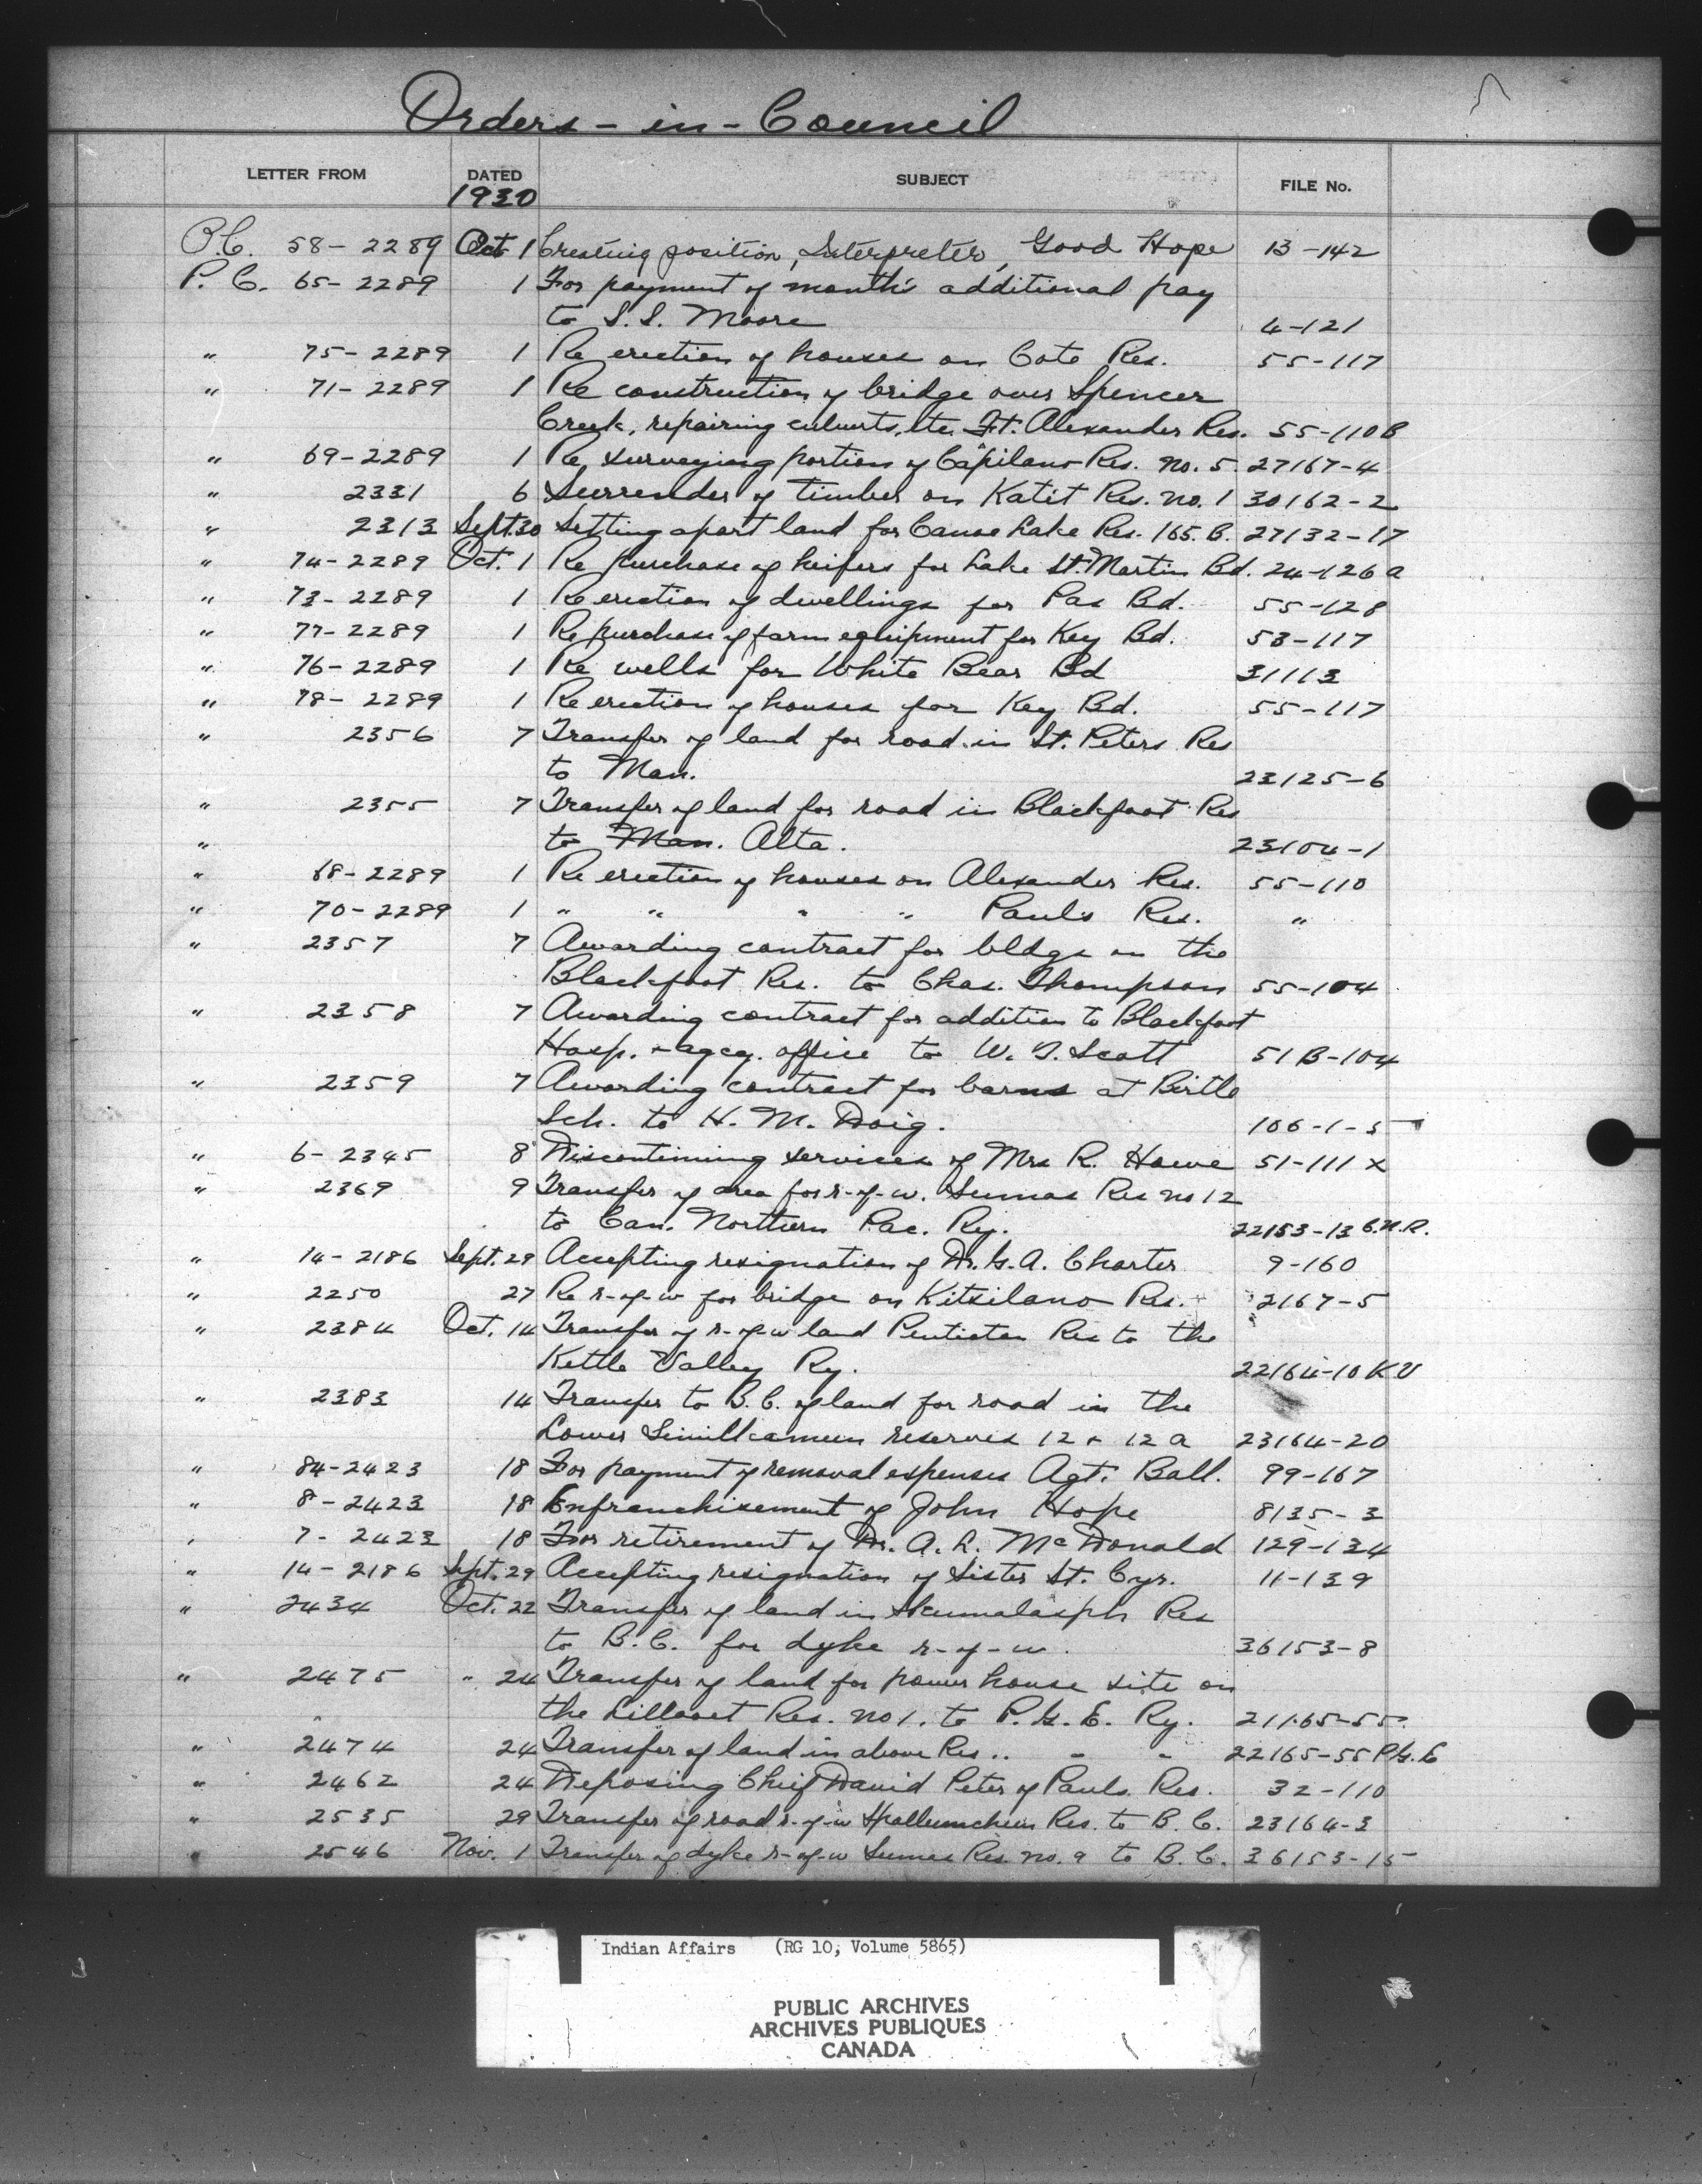 Orders-in-Council
5
LETTER FROM DATED SUBJECT FILE No.
1930
P.C. 58-2289 Oct 1 Creating position, Interpreter, Good Hope 13-142
P.C. 65-2289 1 For payment of month's additional pay
to S.S. Moore 4-121
" 75-2289 1 Re erection of houses on Cote Res. 55-117
" 71-2289 1 Re construction of bridge over Spencer
Creek, repairing culverts, etc. Ft. Alexander Res. 55-110B
" 69-2289 1 Re surveying portion of Capilano Res. no. 5. 27167-4
" 2331 6 Surrender of timber on Katit Res. no. 1 30162-2
" 2313 Sept. 30 Setting apart land for Canoe Lake Res. 165.B. 27132-17
" 74-2289 Oct. 1 Re purchase of heifers for Lake St. Martin Bd. 24-126a
" 73-2289 1 Re erection of dwellings for Pas Bd. 55-128
" 77-2289 1 Re purchase of farm equipment for Key Bd. 53-117
" 76-2289 1 Re wells for White Bear Bd 31113
" 78-2289 1 Re erection of houses for Key Bd. 55-117
" 2356 7 Transfer of land for road in St. Peters Res
to Man. 23125-6
" 2355 7 Transfer of land for road in Blackfoot Res
" to Man. Alta. 23104-1
" 68-2289 1 Re erection of houses on Alexander Res. 55-110
" 70-2289 1 " " " " Paul's Res. "
" 2357 7 Awarding contract for bldgs on the
Blackfoot Res. to Chas. Thompson 55-104
" 2358 7 Awarding contract for addition to Blackfoot
Hosp. + agcy. office to W. T. Scott 51B-104
" 2359 7 Awarding contract for barns at Birtle
Sch. to H. M. Doig. 106-1-5
" 6-2345 8 Discontinuing services of Mrs R. Howe 51-111 x
" 2369 9 Transfer of area for r-of-w. Sumas Res no 12
to Can. Northern Pac. Ry. 22153-13 C.N.R.
" 14-2186 Sept. 29 Accepting resignation of Dr. G.A. Charter 9-160
" 2250 27 Re r-of-w for bridge on Kitsilano Res. 2167-5
" 2384 Oct. 14 Transfer of r-of-w land Penticton Res to the
Kettle Valley Ry. 22164-10 KV
" 2383 14 Transfer to B.C. of land for road in the
Lower Similkameen reserves 12 + 12a 23164-20
" 84-2423 18 For payment of removal expenses Agt. Ball. 99-167
" 8-2423 18 Enfranchisement of John Hope 8135-3
" 7-2423 18 For retirement of Dr. A. R. McDonald 129-134
" 14-2186 Sept. 29 Accepting resignation of Sister St. Cyr. 11-139
" 2434 Oct. 22 Transfer of land in Skumalasph Res
to B.C. for dyke r-of-w. 36153-8
" 2475 " 24 Transfer of land for power house site on
the Lillooet Res. no 1. to P.G.E. Ry. 21165-55
" 2474 24 Transfer of land in above Res .. " " 22165-55 P.G.E
" 2462 24 Deposing Chief David Peter of Pauls Res. 32-110
" 2535 29 Transfer of road r-of-w Spallumcheen Res. to B.C. 23164-3
" 2546 Nov. 1 Transfer of dyke r-of-w Sumas Res. no. 9 to B.C. 36153-15
Indian Affairs (RG 10, Volume 5865)
PUBLIC ARCHIVES
ARCHIVES PUBLIQUES
CANADA